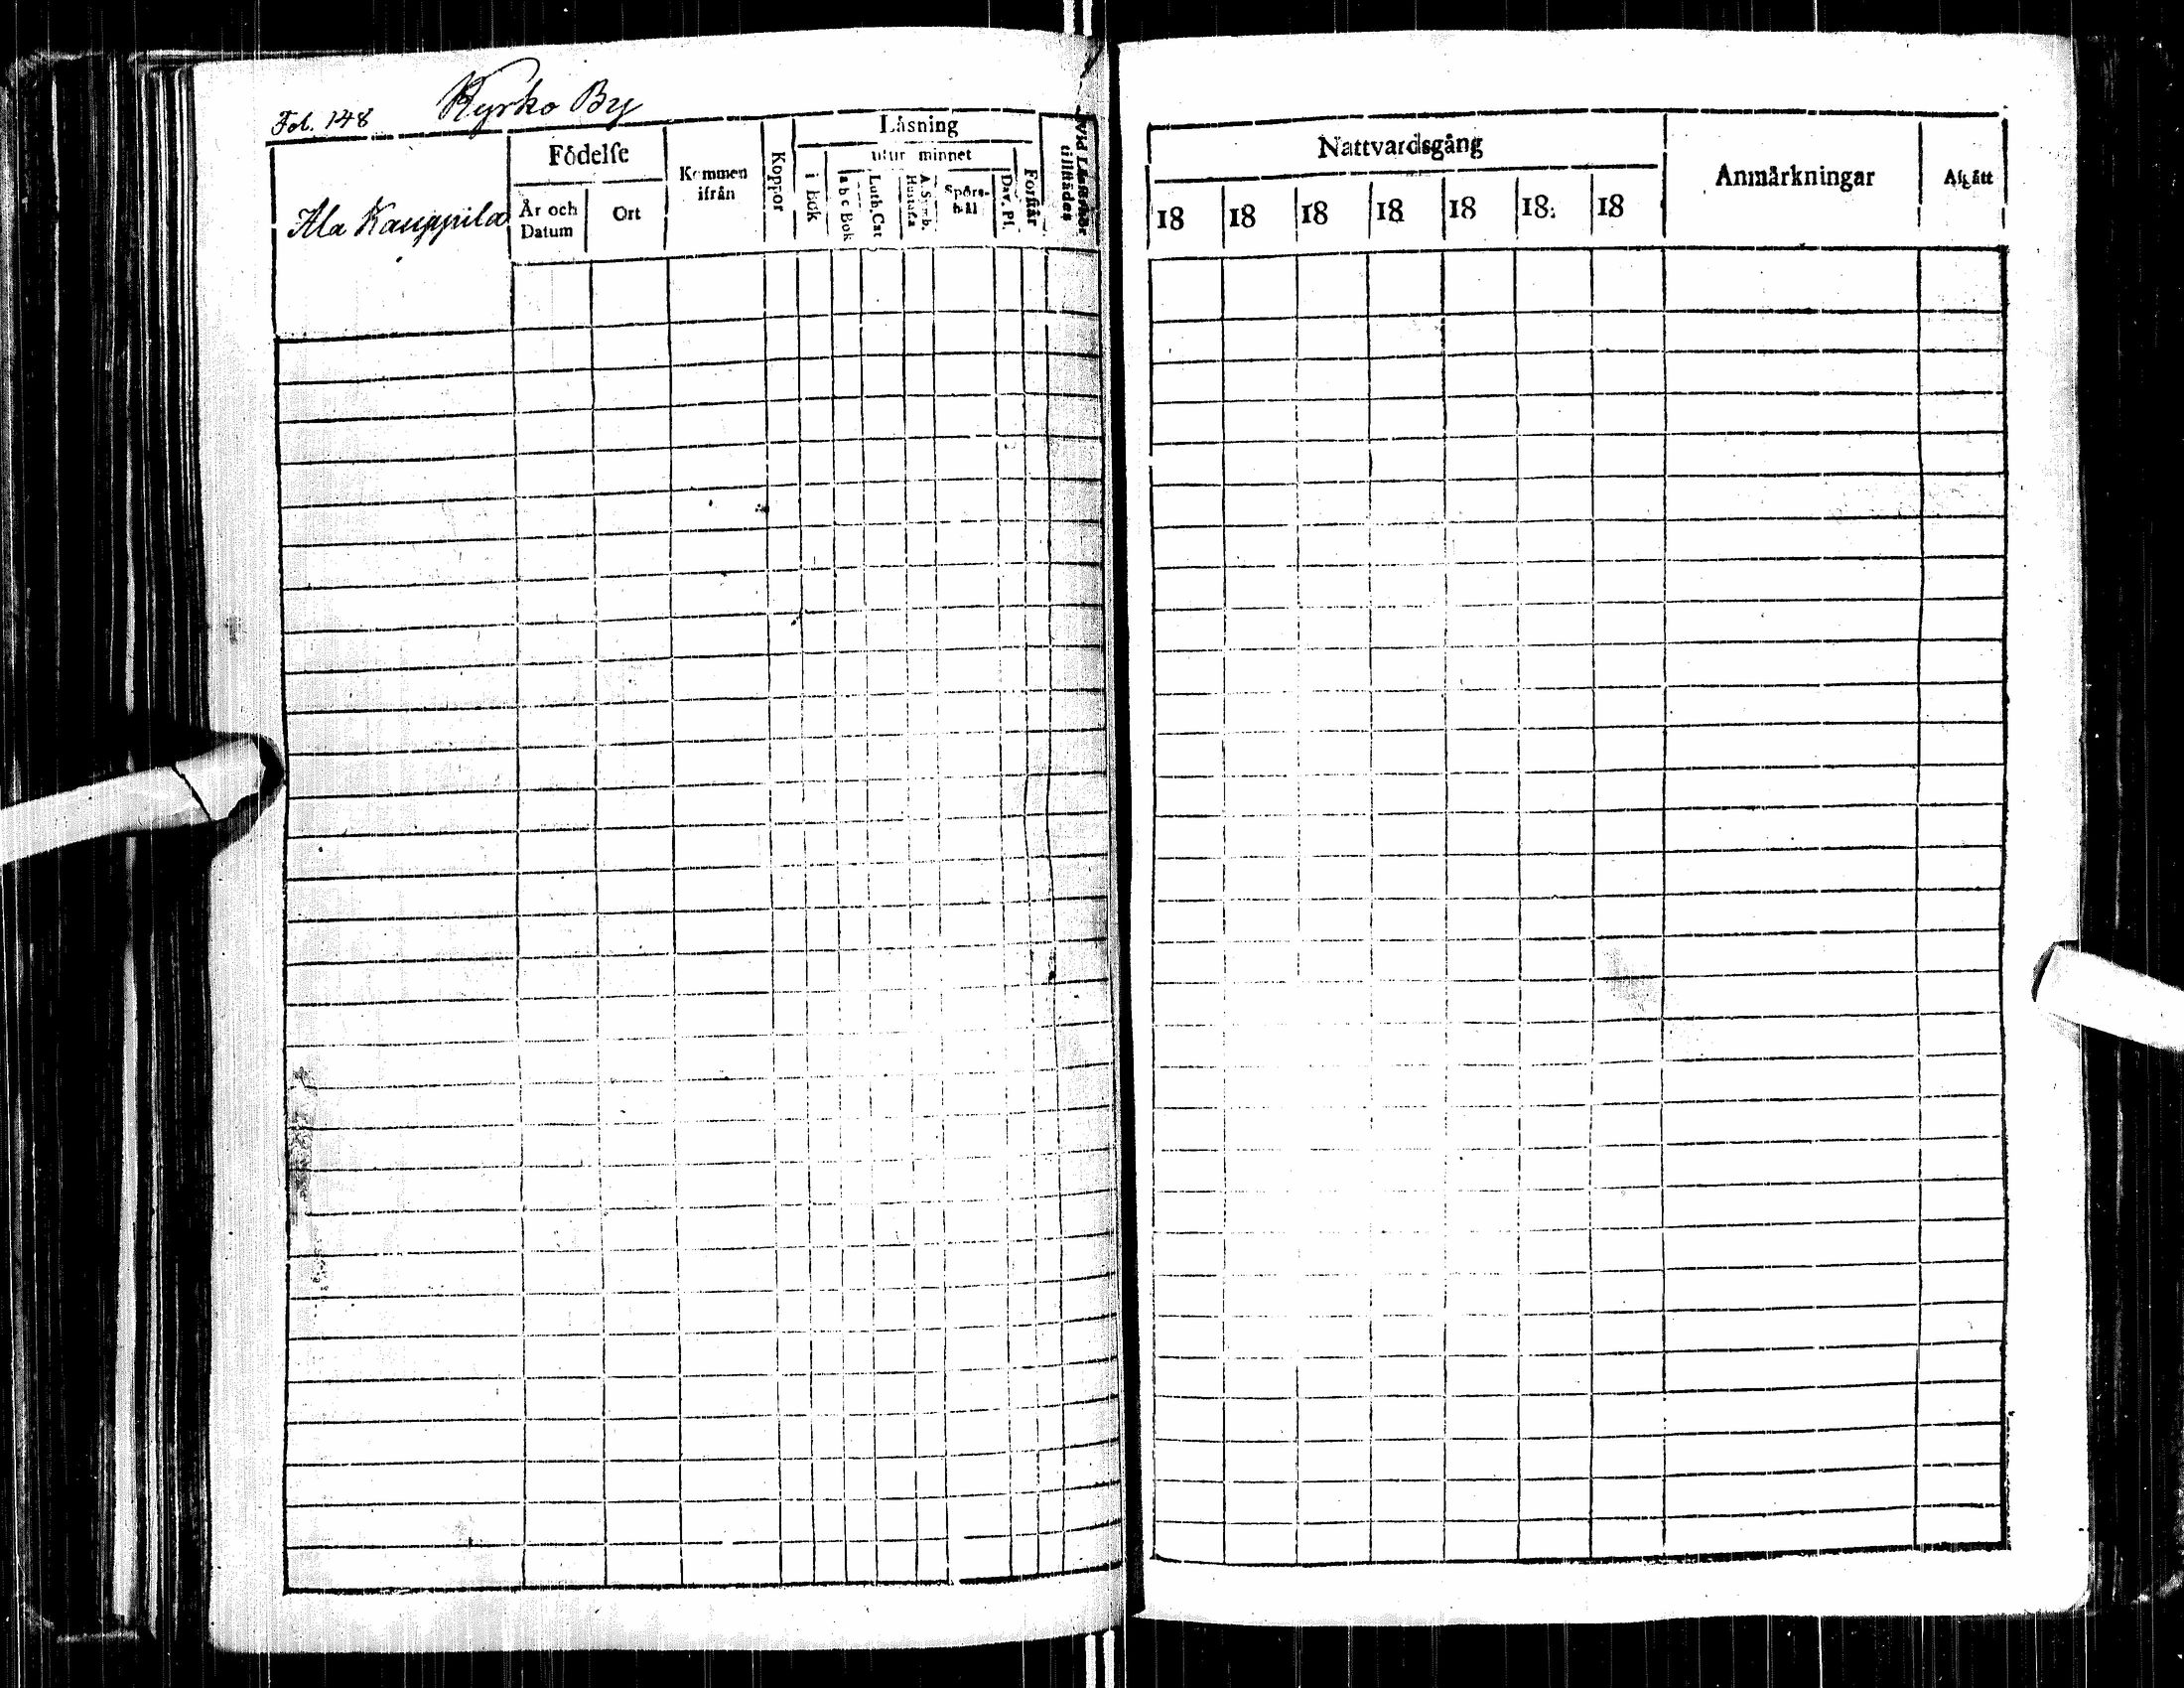 Fol. 148 Kyrko By
Ala Kauppila
Födelse
År och Datum
Ort
Kommen ifrån
Koppor
Läsning
i Bok
utur minnet
a b c Bok
Luth. Cat
A. Symb. Hustafla
Spörs-mål
Dav. Ps.
Förstår
Vid Läsförhör tillstädes
Nattvardsgång
18 18 18 18 18 18 18
Anmärkningar
Afgått